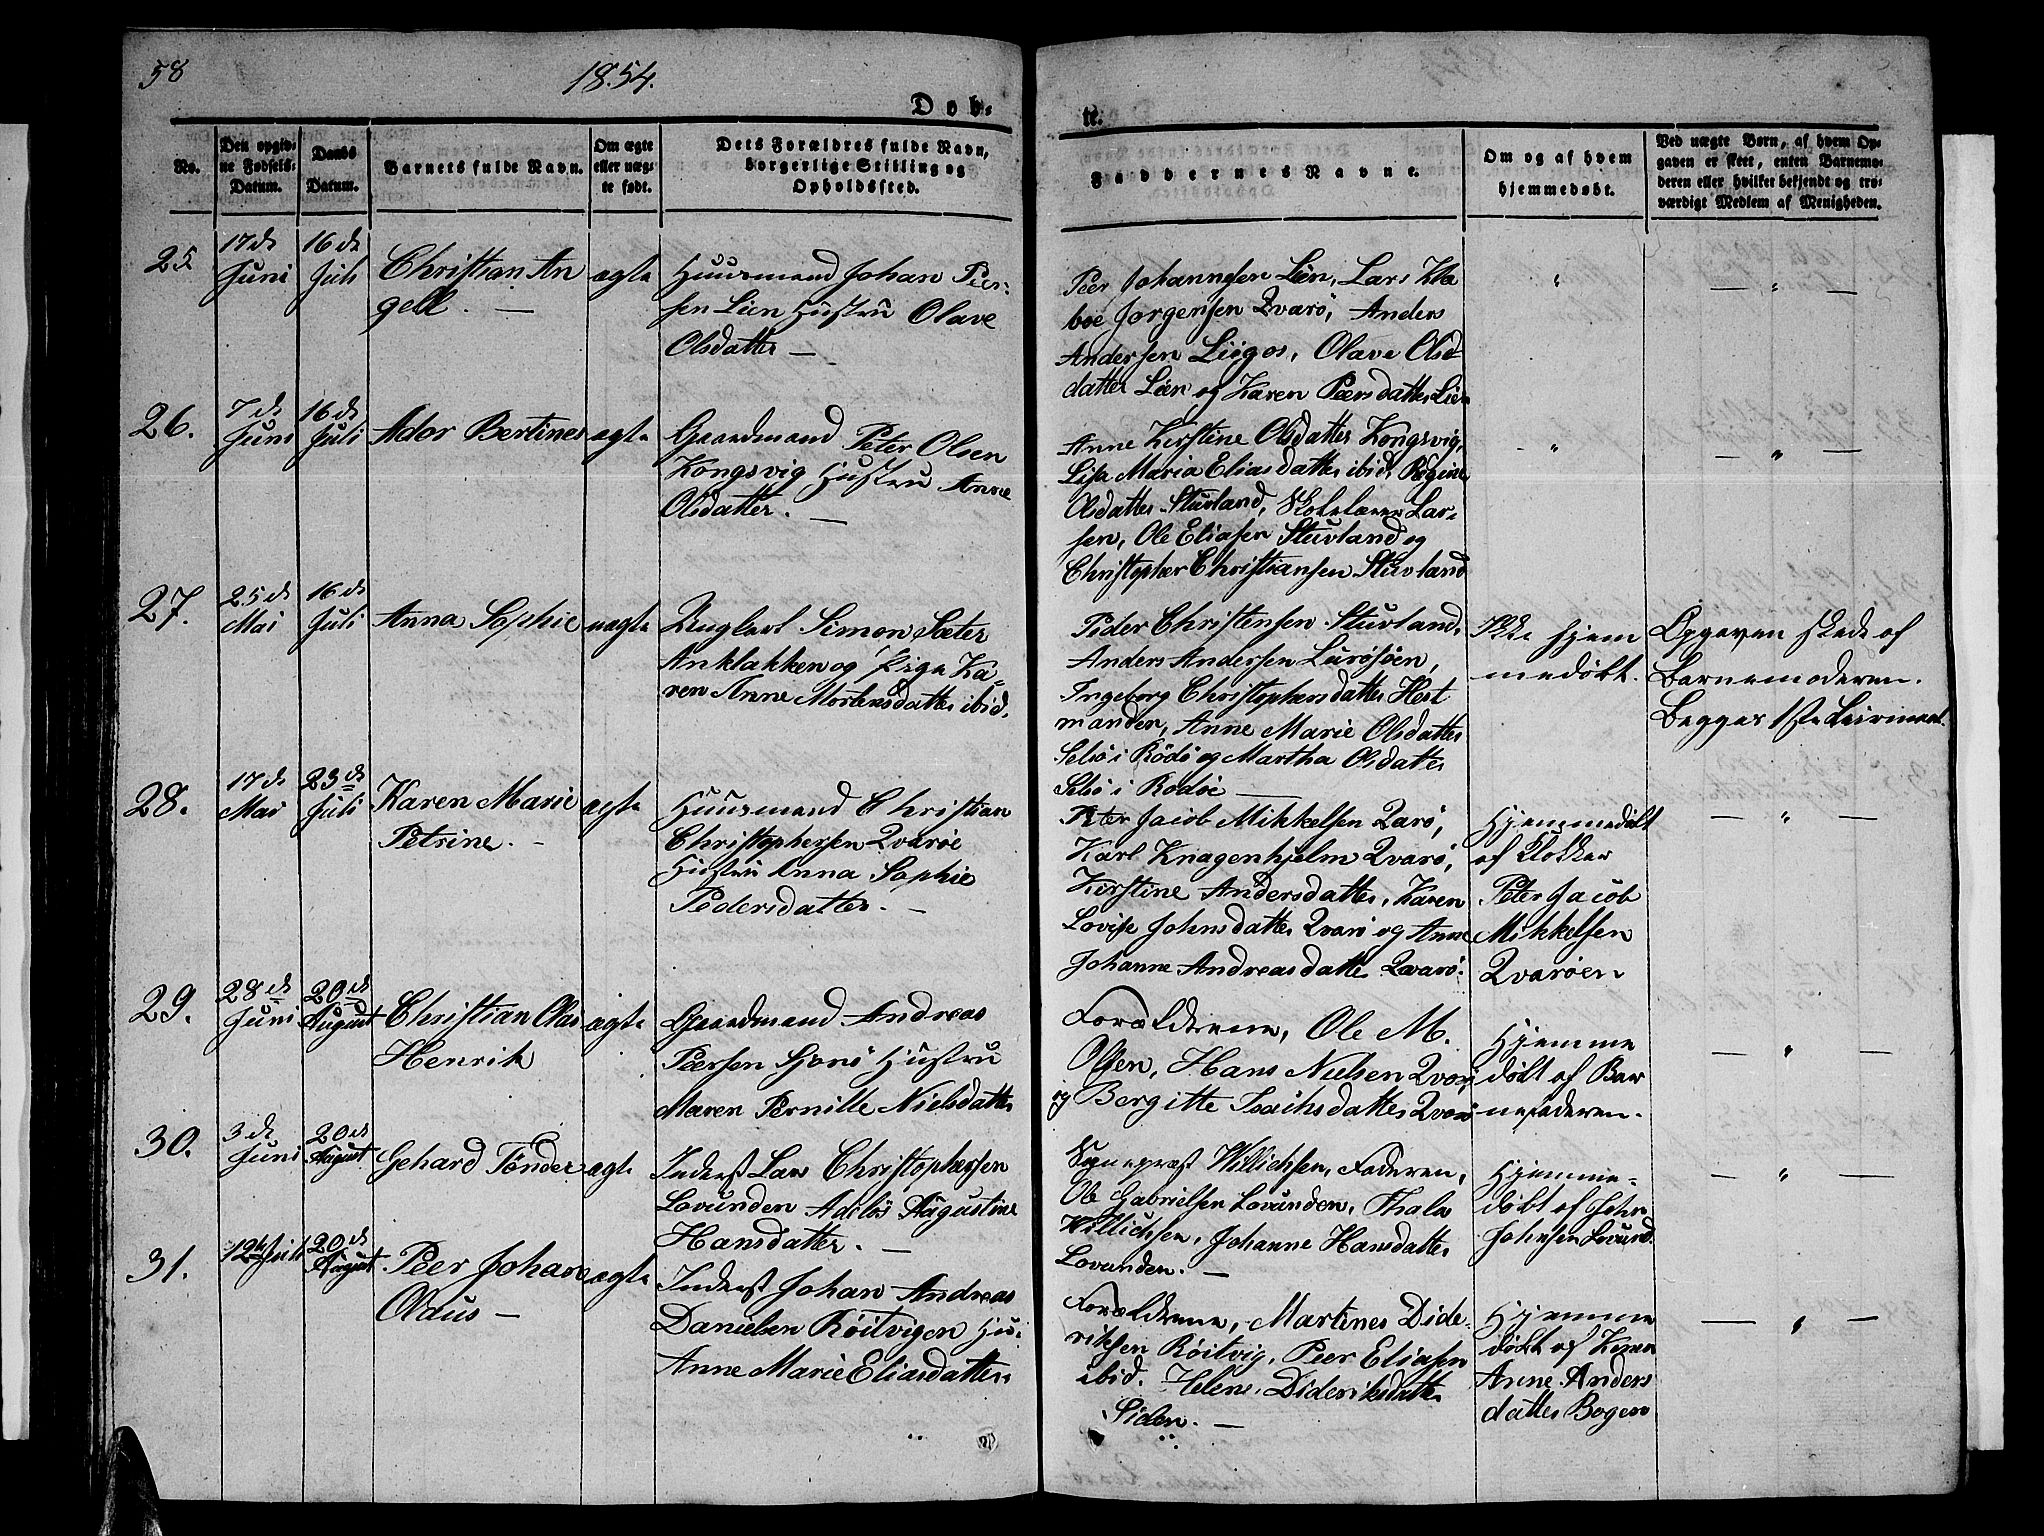 58
1854.
Døb-
te.
No.
Den opgiv-
ne Fødsels-
Datum.
Daabs
Datum.
Barnets fulde Navn.
Om ægte
eller uæg-
te født.
Dets Forældres fulde Navn,
borgerlige Stilling og
Opholdssted.
Faddernes Navne.
Om og af hvem
hjemmedøbt.
Ved uægte Børn, af hvem Op-
gaven er skeet, enten Barnemo-
deren eller hvilket bekjendt og tro-
værdigt Medlem af Menigheden.
25
17de
Juni
16de
Juli
Christian An
gell. —
ægte
Huusmand Johan Peer-
sen Lien Hustru Olave
Olsdatter —
Peer Johannesen Lien, Lars
boe Jørgensen Qvarø, Anders
Andersen Liøgos, Olave Ols-
datter Lien og Karen Peersdatter Lien
"
— " —
26.
7de
Juni
16de
Juli
Ador Bertines
ægte
Gaardmand Peter Olsen
Kongsvig Hustru Anne
Olsdatter. —
Anne Kirstine Olsdatter Kongsvig,
Lisa Maria Eliasdatter ibid, Regine
Olsdatter Stuvland, Skolelærer Lar-
sen, Ole Eliasen Stuvland og
Christopher Christiansen Stuvland
"
— " —
27.
25de
Mai
16de
Juli
Anna Sophie
uægte
Ungkarl Simon Sæter
Anklakken og Pige Ka-
ren Anne Mortensdatter ibid.
Peder Christensen Stuvland,
Anders Andersen Lurøsöen,
Ingeborg Christophersdatter Hest
manden, Anne Marie Olsdatter
Selsø i Rödö og Martha Olsdatter
Selsø i Rødøe —
Ikke hjem
medøbt.
Opgaven skede af
Barnemoderen.
Begges 1ste Leiermaal.
28.
17de
Mai
23de
Juli
Karen Marie
Petrine. —
ægte
Huusmand Christian
Christophersen Qvarøe
Hustru Anna Sophie
Pedersdatter. —
Peter Jacob Mikkelsen Qarø,
Karl Knagenhjelm Qvarø,
Kirstine Andersdatter, Karen
Lovise Johnsdatter Qvarø og Anne
Johanne Andreasdatter Qvarø.
Hjemmedøbt
af Klokker
Peter Jacob
Mikkelsen
Qvarøen
— " —
29.
28de
Juni
20de
August
Christian Olai
Henrik
ægte
Gaardmand Andreas
Peersen Sjonö Hustru
Maren Pernille Nielsdatter
Forældrene, Ole M.
Olsen, Hans Nielsen Qvarø
og Bergitte Isachsdatter Qvarø
Hjemme
døbt af Bar
nefaderen.
— " —
30.
3de
Juni
20de
August
Gehard Tönder
ægte
Inderst Lars Christophersen
Lovunden Adilös Augustine
Hansdatter. —
Sognepræst Willichsen, Faderen,
Ole Gabrielsen Lovunden, Thala
Willichsen, Johanne Hansdatter
Lovunden. —
Hjemme-
døbt af John
Johnsen Lovund.
— " —
31.
12te Juli
20de
August
Peer Johan
Olaus —
ægte
Inderst Johan Andreas
Danielsen Röitvigen Hu.
Anne Marie Eliasdatter.
Forældrene, Martines Dide-
riksen Röitvig, Peer Eliasen
ibid. Helene Dideriksdatter
Siden. —
Hjemme
døbt af Karen
Anne Anders
datter Bogen
— " —